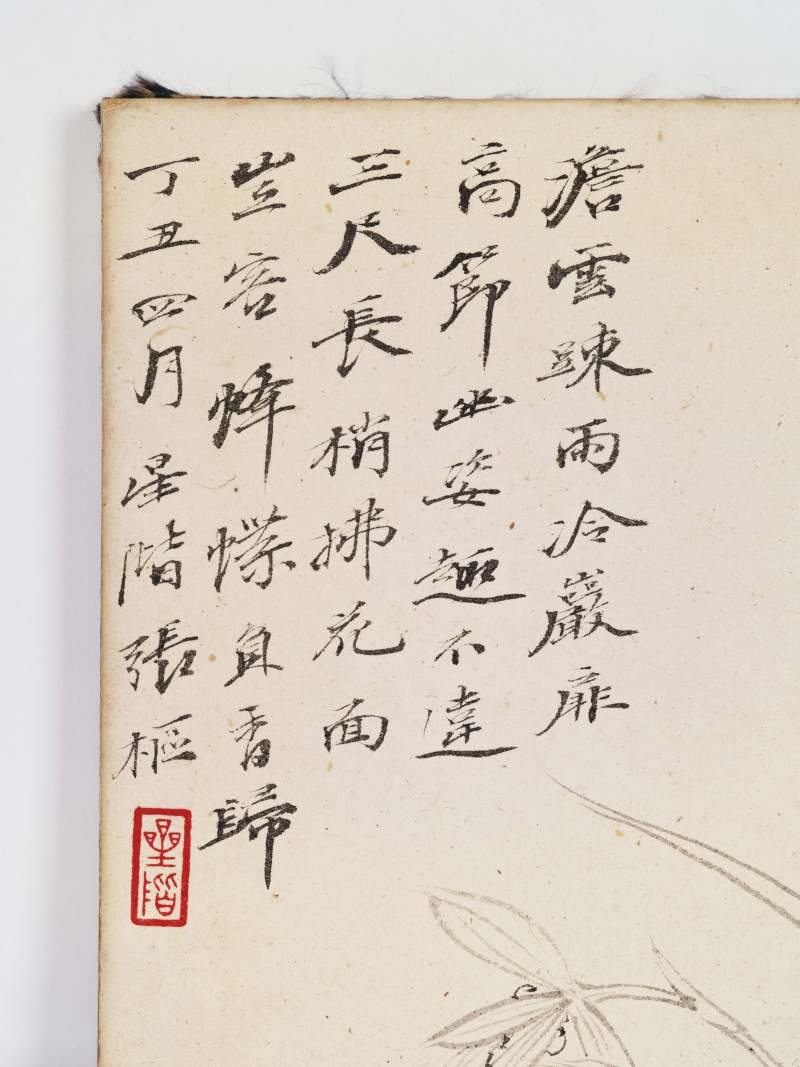 澹雲踈雨冷巖扉
高節幽姿趣不違
三尺長梢拂花面
豈容蜂蝶負香歸
丁丑四月星階張樞
星階